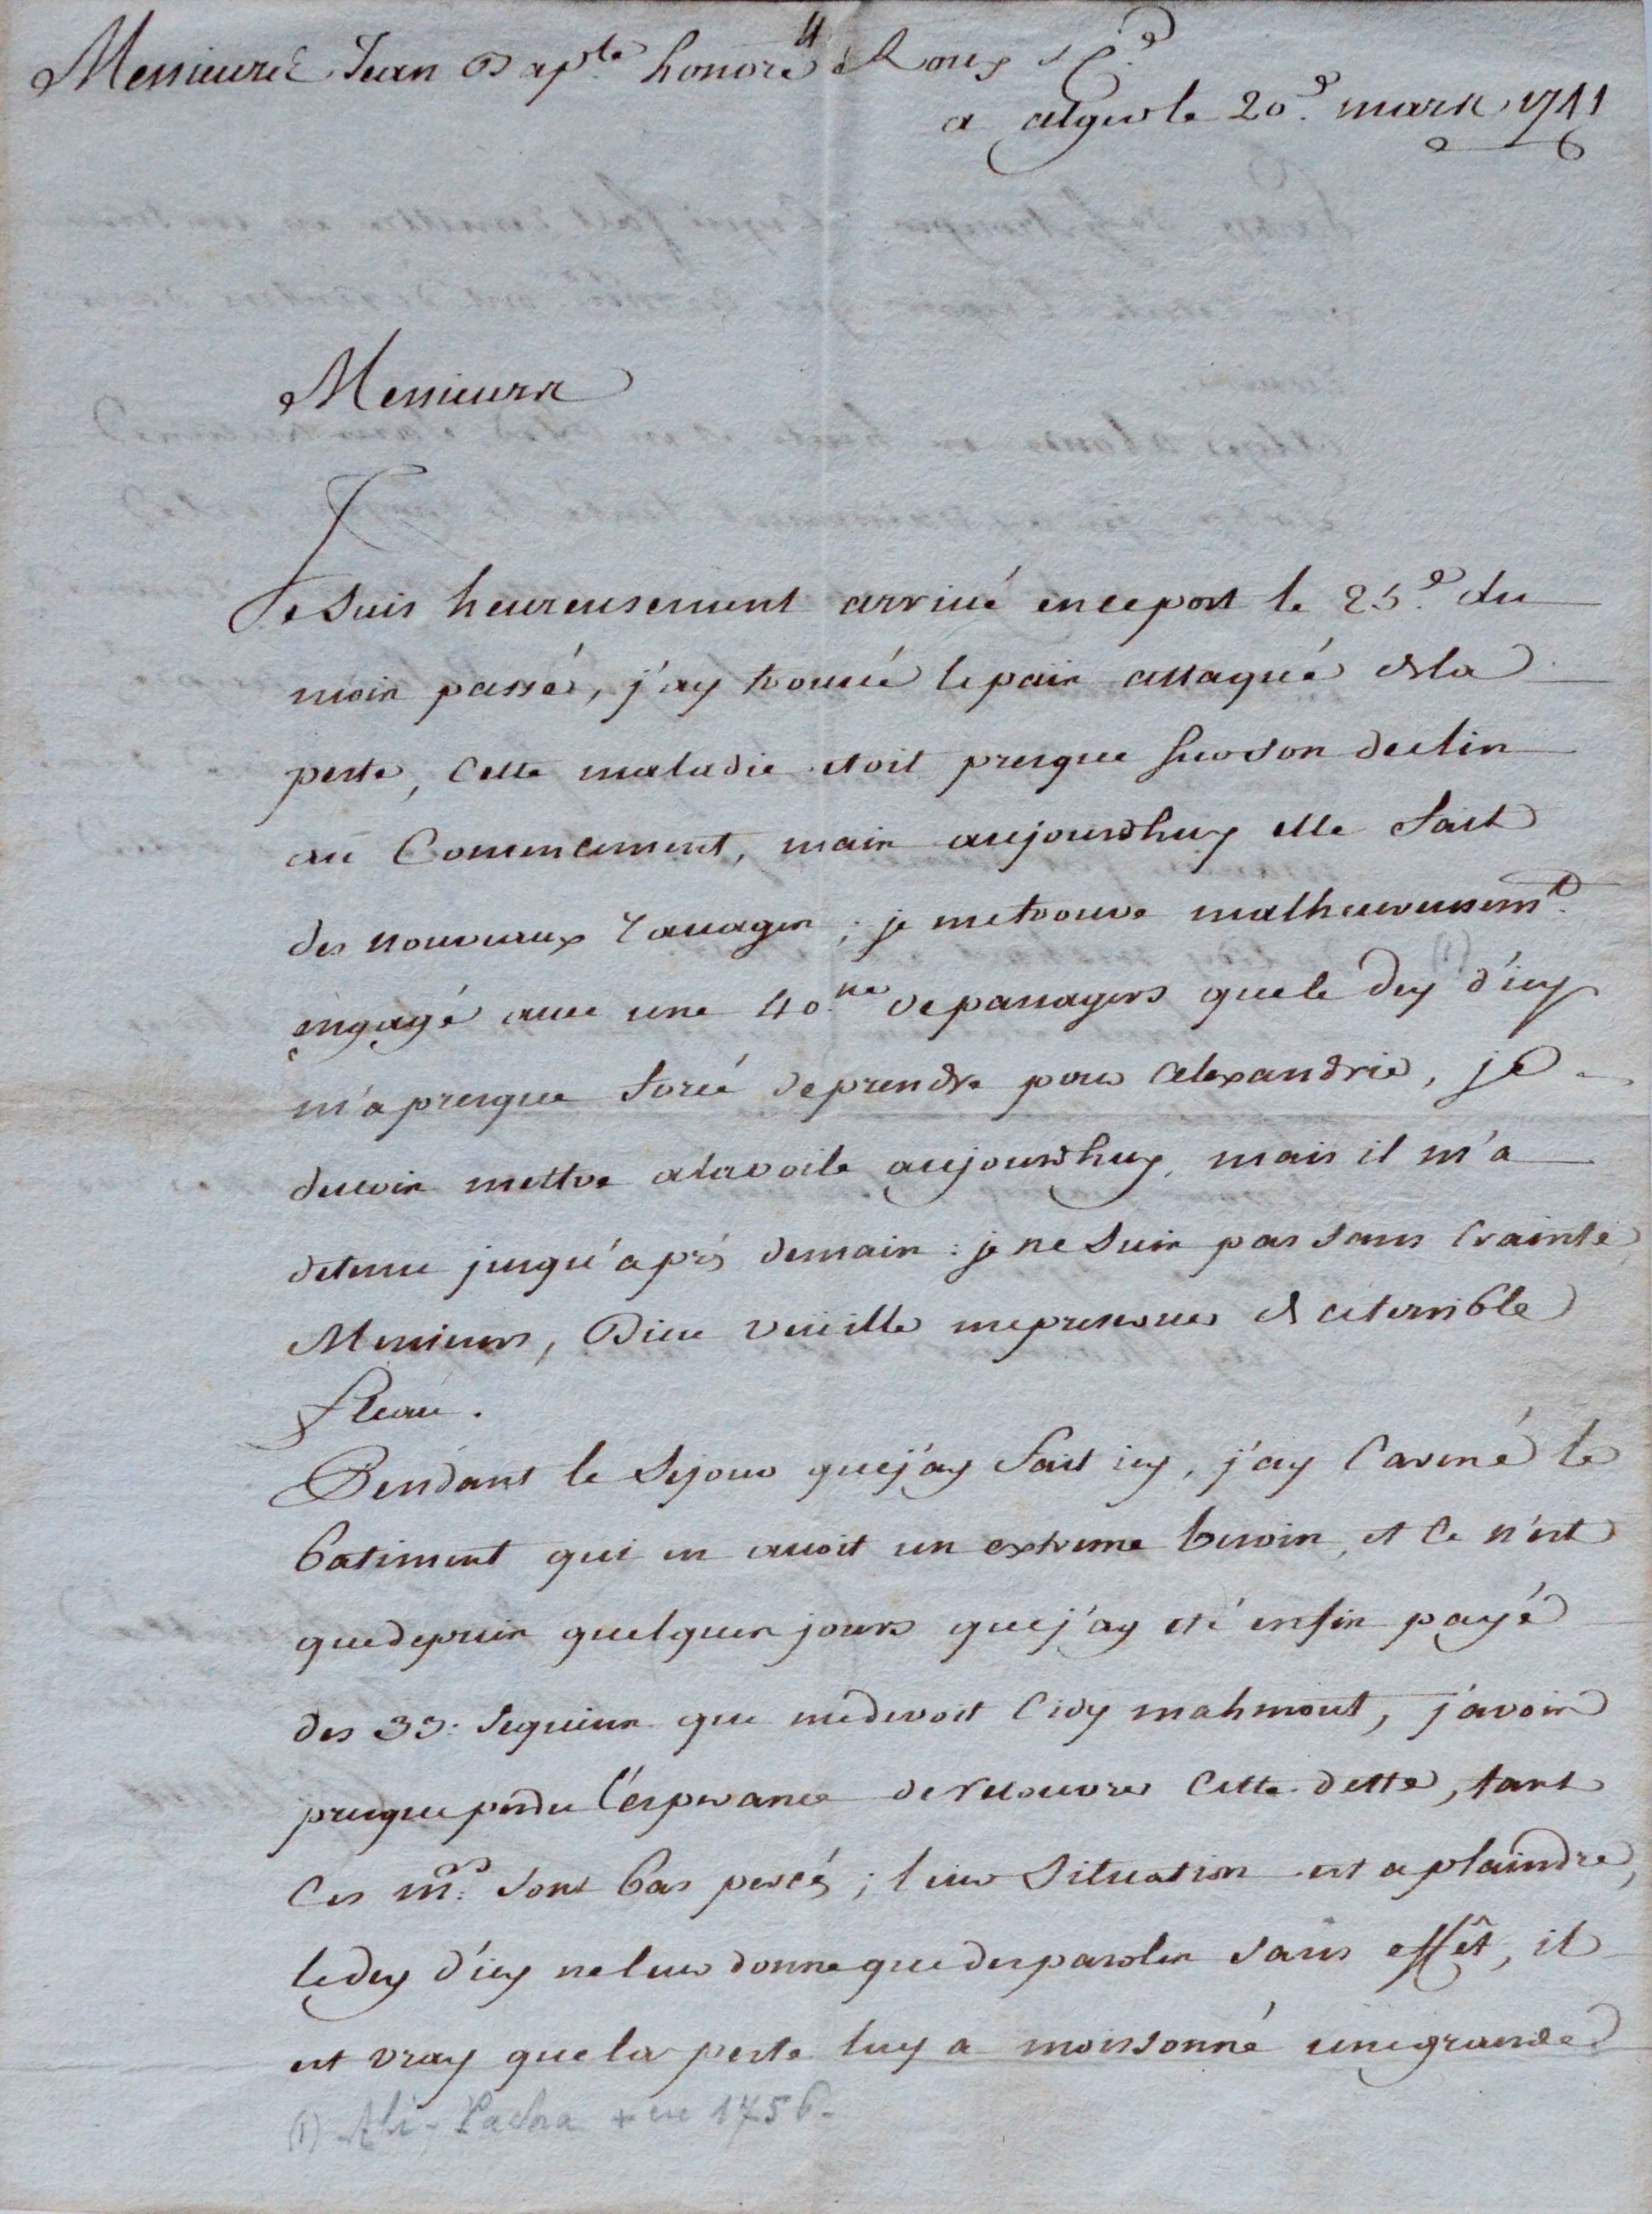 Messieurs Jean Bapte. honoré Roux & Ce.
a alger le 20e. mars 1741
Messieurs
Je suis heureusement arrivé en ce port le 25e. du
mois passé, j'ay trouvé le païs attaqué de la
peste, Cette maladie etoit presque sur son declin
au Commencement, mais aujourd'huy elle fait
des nouveaux ravages, je me trouve malheureusemt.
engagé avec une 40.ne de passagers que le Dey d'icy (1)
m'a presque forcé de prendre pour alexandrie, je
devois mettre a la voile aujourd'huy, mais il m'a
detenu jusqu'après demain : je ne suis pas sans Crainte,
Messieurs, Dieu veüille me preserver de ce terrible
fleau.
Pendant le sejour que j'ay fait icy, j'ay Carené le
batiment qui en avoit un extreme besoin, et Ce n'est
que depuis quelques jours que j'ay eté enfin payé
des 33. sequins que me devoit Cidy mahmout, j'avois
presque perdu l'esperance de recouvrer Cette dette, tant
Ces mrs. sont bas percés ; leur situation est a plaindre,
le dey d'icy ne leur donne que des paroles sans effêt, il
est vray que la peste luy a moissonné une grande
(1) Ali-Pacha + en 1756.